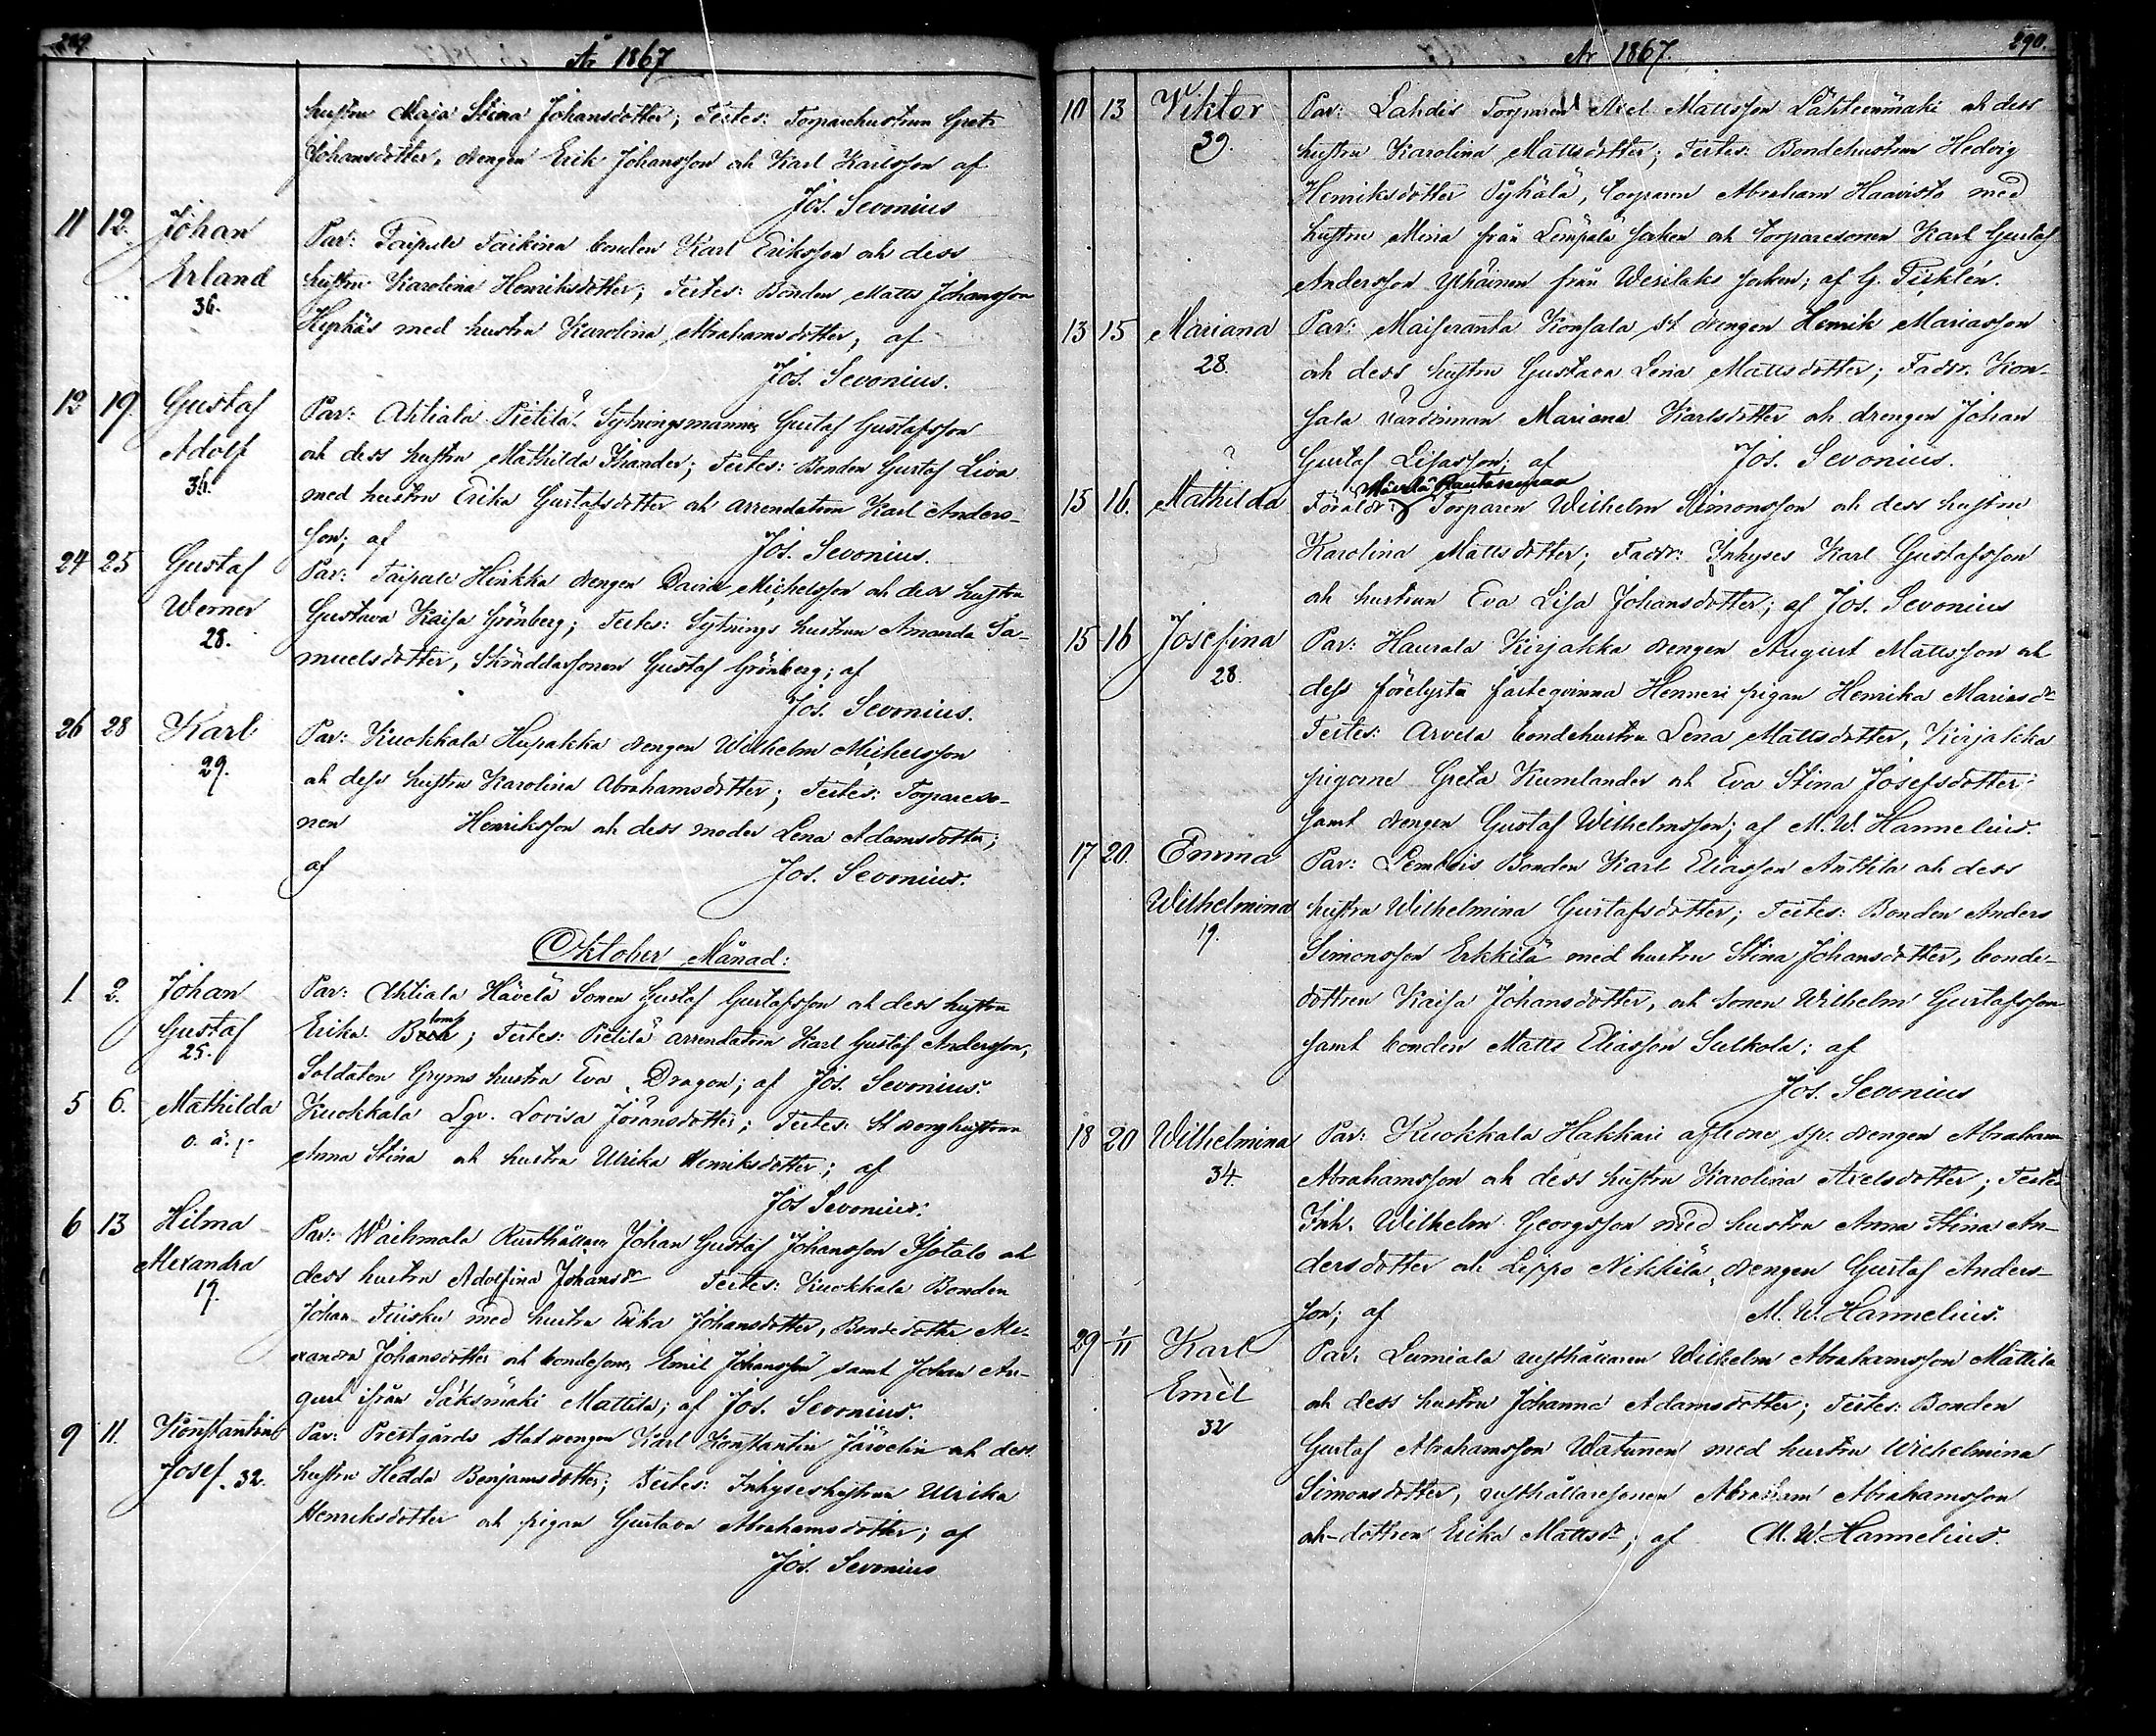 289.
År 1867
hustru Maja Stina Johansdotter; Testes: Torparehustrun Greta
Johansdotter, drengen Erik Johansson och Karl Karlsson af
Jos. Sevonius
11 12. Johan Erland 36.
Par: Taipale Taikina bonden Karl Eriksson och dess
hustru Karolina Henriksdotter; Testes: Bonden Matts Johansson
med hustru Karolina Abrahamsdotter, af
Jos. Sevonius.
12 19. Gustaf Adolf 36.
Par: Ahtiala Pietilä Sytningsmannen Gustaf Gustafsson
och dess hustru Mathilda Thander; Testes: Bonden Gustaf Liva
med hustru Erika Gustafsdotter och arrendatorn Karl Anders-
son; af Jos. Sevonius.
24 25 Gustaf Werner 28.
Par: Taipale Hinkka drengen David Michelsson och dess hustru
Gustava Kaisa Grönberg; Testes: Sytnings hustrun Amanda Sa-
muelsdotter, Skräddarsonen Gustaf Grönberg; af
Jos. Sevonius.
26 28 Karl 29.
Par: Kuokkala Hupakka drengen Wilhelm Michelsson
och dess hustru Karolina Abrahamsdotter; Testes: Torpareso-
nen Henriksson och dess moder Lena Adamsdotter;
af Jos. Sevonius.
Oktober Månad:
1 2. Johan Gustaf 25.
Par: Ahtiala Hävelä Sonen Gustaf Gustafsson och dess hustru
Erika ; Testes: Pietilä arrendatorn Karl Gustaf Andersson,
Soldaten Gryms hustru Eva Dragon; af Jos. Sevonius.
5 6. Mathilda o. ä.
Kuokkala Lgv. Lovisa Göransdotter; Testes: St drenghustrun
Anna Stina och hustru Ulrika Henriksdotter; af
Jos Sevonius.
6 13 Hilma Alexandra 19.
Par: Waihmala Rusthållaren Johan Gustaf Johansson Isotalo och
dess hustru Adolfina Johansdr Testes: Kuokkala Bonden
Johan Tuisku med hustru Erika Johansdotter, Bondedotter Ale-
xandra Johansdotter och bondesonen Emil Johansson samt Johan Au-
gust ifrån Sääksmäki Mattila; af Jos. Sevonius.
9 11. Konstantin Josef. 32.
Par: Prestgårds Statdrengen Karl Konstantin Järvelin och dess
hustru Hedda Benjamsdotter; Testes: Inhyseshustrun Ulrika
Henriksdotter och pigan Gustava Abrahamsdotter; af
Jos. Sevonius
290.
År 1867.
10 13 Viktor 39.
Par: Lahdis Torparen Axel Mattsson Lähteenmäki och dess
hustru Karolina Mattsdotter; Testes: Bondehustrun Hedvig
Henriksdotter Pyhälä, torparen Abraham Haavisto med
hustru Mina från Lempälä socken och torparesonen Karl Gustaf
Andersson Yhäinen från Wesilaks socken; af G. Ticklén.
13 15 Mariana 28.
Par: Maisaranta Konsala St drengen Henrik Mariasson
och dess hustru Gustava Lena Mattsdotter; Faddr. Kon-
sala värdinnan Mariana Karlsdotter och drengen Johan
Gustaf Lisasson; af Jos. Sevonius.
15 16. Mathilda ?
Hävelä Rautasenmaa
Föräldr: Torparen Wilhelm Simonsson och dess hustru
Karolina Mattsdotter; Faddr: Inhyses Karl Gustafsson
och hustrun Eva Lisa Johansdotter; af Jos. Sevonius
15 16 Josefina 28.
Par: Haurala Kirjakka drengen August Mattsson och
dess förelysta fästeqvinna Henneri pigan Henrika Mariasdr
Testes: Arvela bondehustru Lena Mattsdotter, Kirjakka
pigorne Greta Kumlander och Eva Stina Josefsdotter
samt drengen Gustaf Wilhelmsson; af M. W. Hannelius.
17 20. Emma Wilhelmina 19.
Par: Lembois Bonden Karl Eliasson Anttila och dess
hustru Wilhelmina Gustafsdotter; Testes: Bonden Anders
Simonsson Erkkilä med hustru Stina Johansdotter, bonde-
dottren Kaisa Johansdotter, och sonen Wilhelm Gustafsson
samt bonden Matts Eliasson Sulkola; af
Jos. Sevonius
18 20 Wilhelmina 34.
Par: Kuokkala Hakkari aflidne sp. drengen Abraham
Abrahamsson och dess hustru Karolina Axelsdotter; Testes
Inh. Wilhelm Georgsson med hustru Anna Stina An-
dersdotter och Lippo Nikkilä drengen Gustaf Anders-
son; af M. W. Hannelius.
29 1/11 Karl Emil 32
Par: Lumiala rusthållaren Wilhelm Abrahamsson Mattila
och dess hustru Johanna Adamsdotter; Testes: Bonden
Gustaf Abrahamsson Watunen med hustru Wilhelmina
Simonsdotter, rusthållaresonen Abraham Abrahamsson
och dottren Erika Mattsdr; af M. W. Hannelius.